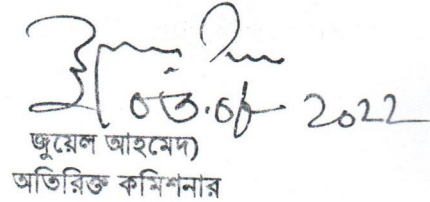 2022
জুয়েল আহমেদ)
অতিরিক্ত কমিশনার